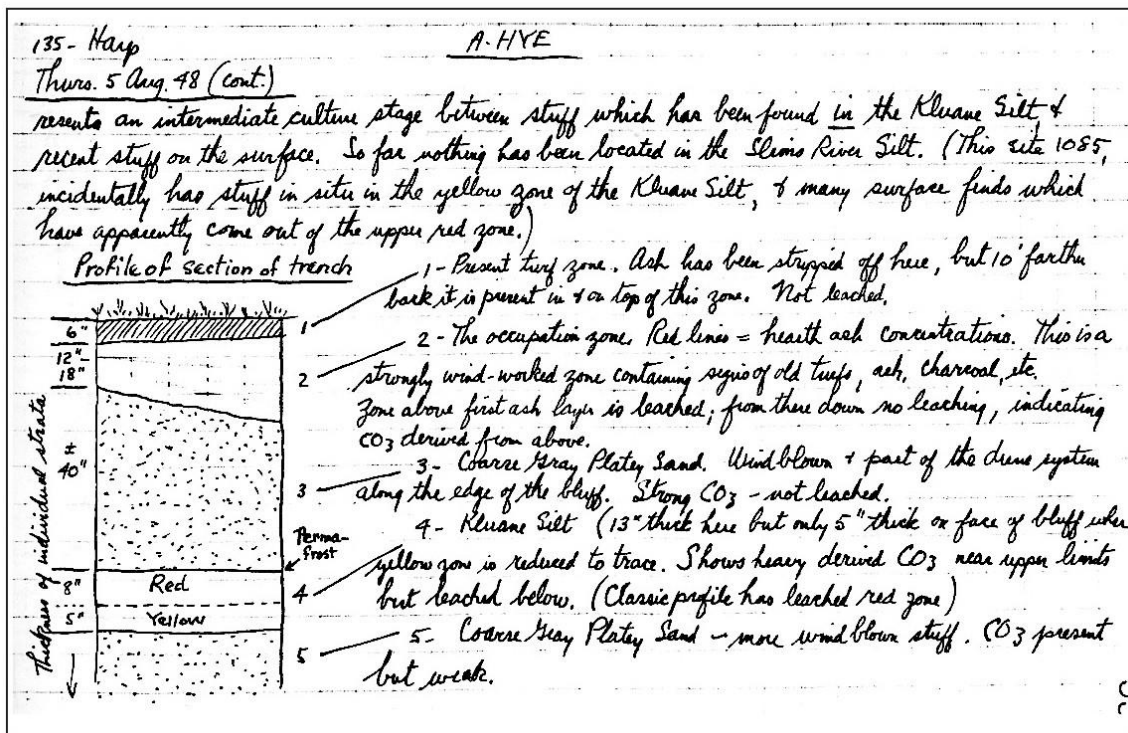 135- Harp
A. HYE
Thurs. 5 Aug. 48 (cont.)
resents an intermediate culture stage between stuff which has been found in the Kluane Silt &
recent stuff on the surface. So far nothing has been located in the Slims River Silt. (This site 1085,
incidentally has stuff in situ in the yellow zone of the Kluane Silt, & many surface finds which
have apparently come out of the upper red zone.)
Profile of section of trench
1 - Present turf zone. Ash has been stripped off here, but 10' farther
back it is present in & on top of this zone. Not leached.
2 - The occupation zone. Red lines = hearth ash concentrations. This is a
strongly wind-worked zone containing signs of old turfs, ash, charcoal, etc.
Zone above first ash layer is leached; from there down no leaching, indicating
CO3 derived from above.
3 - Coarse Gray Platey Sand. Windblown & part of the dune system
along the edge of the bluff. Strong CO3 - not leached.
4 - Kluane Silt (13" thick here but only 5" thick on face of bluff where
yellow zone is reduced to trace. Shows heavy derived CO3 near upper limits
but leached below. (Classic profile has leached red zone)
5 - Coarse Gray Platey Sand - more windblown stuff. CO3 present
but weak.
Thickness of individual strata
6"
12"-
18"
±
40"
8"
5"
1
2
3
Perma-
frost
4
5
Red
Yellow